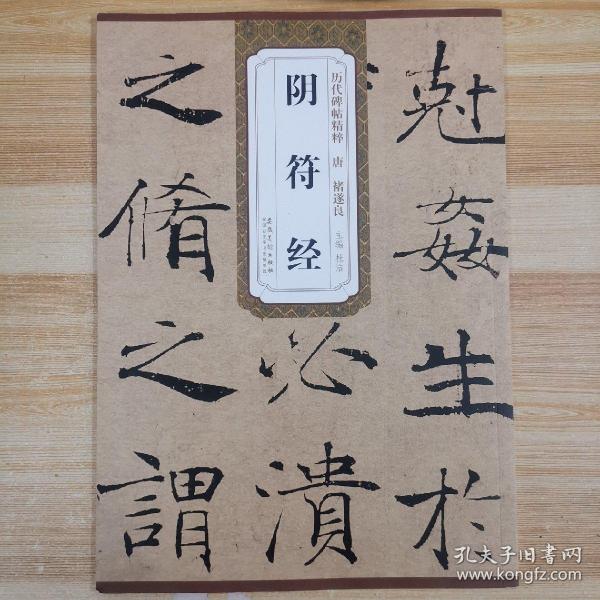 尅姦生於
历代碑帖精粹 唐 褚遂良 主编 杜浩
阴符经
安徽美术出版社
必潰
之脩之謂
孔夫子旧书网
www.kongfz.com